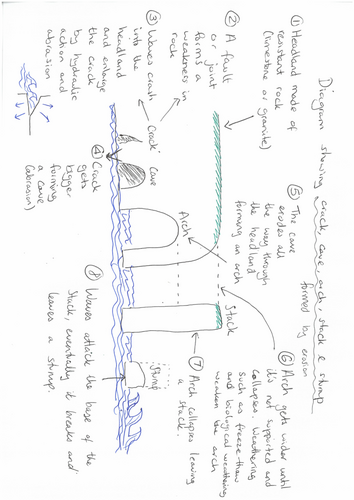 Diagram showing crack, cave, arch, stack & stump
formed by erosion
① Headland made of
resistant rock
(limestone or granite)
② A fault
or joint
forms a
weakness in
rock
③ Waves crash
into the
headland
and enlarge
the crack
by hydraulic
action and
abrasion
④ Crack
gets
bigger
forming
a cave
(abrasion)
⑤ The cave
erodes all
the way through
the headland
forming an arch
⑥ Arch gets wider until
it's not supported and
collapses. Weathering
such as freeze-thaw
and biological weathering
weaken the arch
⑦ Arch collapses leaving
a stack.
⑧ Waves attack the base of the
stack, eventually it breaks and
leaves a stump.
Crack
Cave
Arch
Stack
Stump